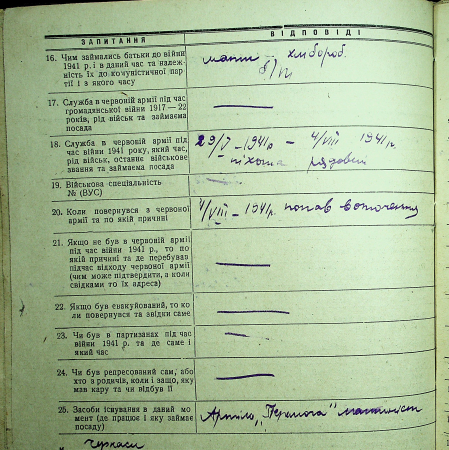 ЗАПИТАННЯ ВІДПОВІДІ
16. Чим займались батьки до війни мати хлібороб.
1941 р. і в даний час та належ- б/п
ність їх до комуністичної пар-
тії і з якого часу
17. Служба в червоній армії під час
громадянської війни 1917—22
років, рід військ та займаєма
посада
18. Служба в червоній армії під 29/V – 1941р – 4/VIII 1941р.
час війни 1941 року, який час, піхота рядовий
рід військ, останнє військове
звання та займаєма посада
19. Військова спеціальність
№ (ВУС)
20. Коли повернувся з червоної 4/VIII – 1941р. попав в оточення
армії та по якій причині
21. Якщо не був в червоній армії
під час війни 1941 р., то по
якій причині та де перебував
підчас відходу червоної армії
(чим може підтвердити, а коли
свідками то їх адреса)
22. Якщо був евакуйований, то ко
ли повернувся та звідки саме
23. Чи був в партизанах під час
війни 1941 р. та де саме і
який час
24. Чи був репресований сам, або
хто з родичів, коли і защо, яку
мав кару та чи відбув її
25. Засоби існування в даний мо Артіль „Перемога"
мент (де працює і яку займає
посаду)
Черкаси